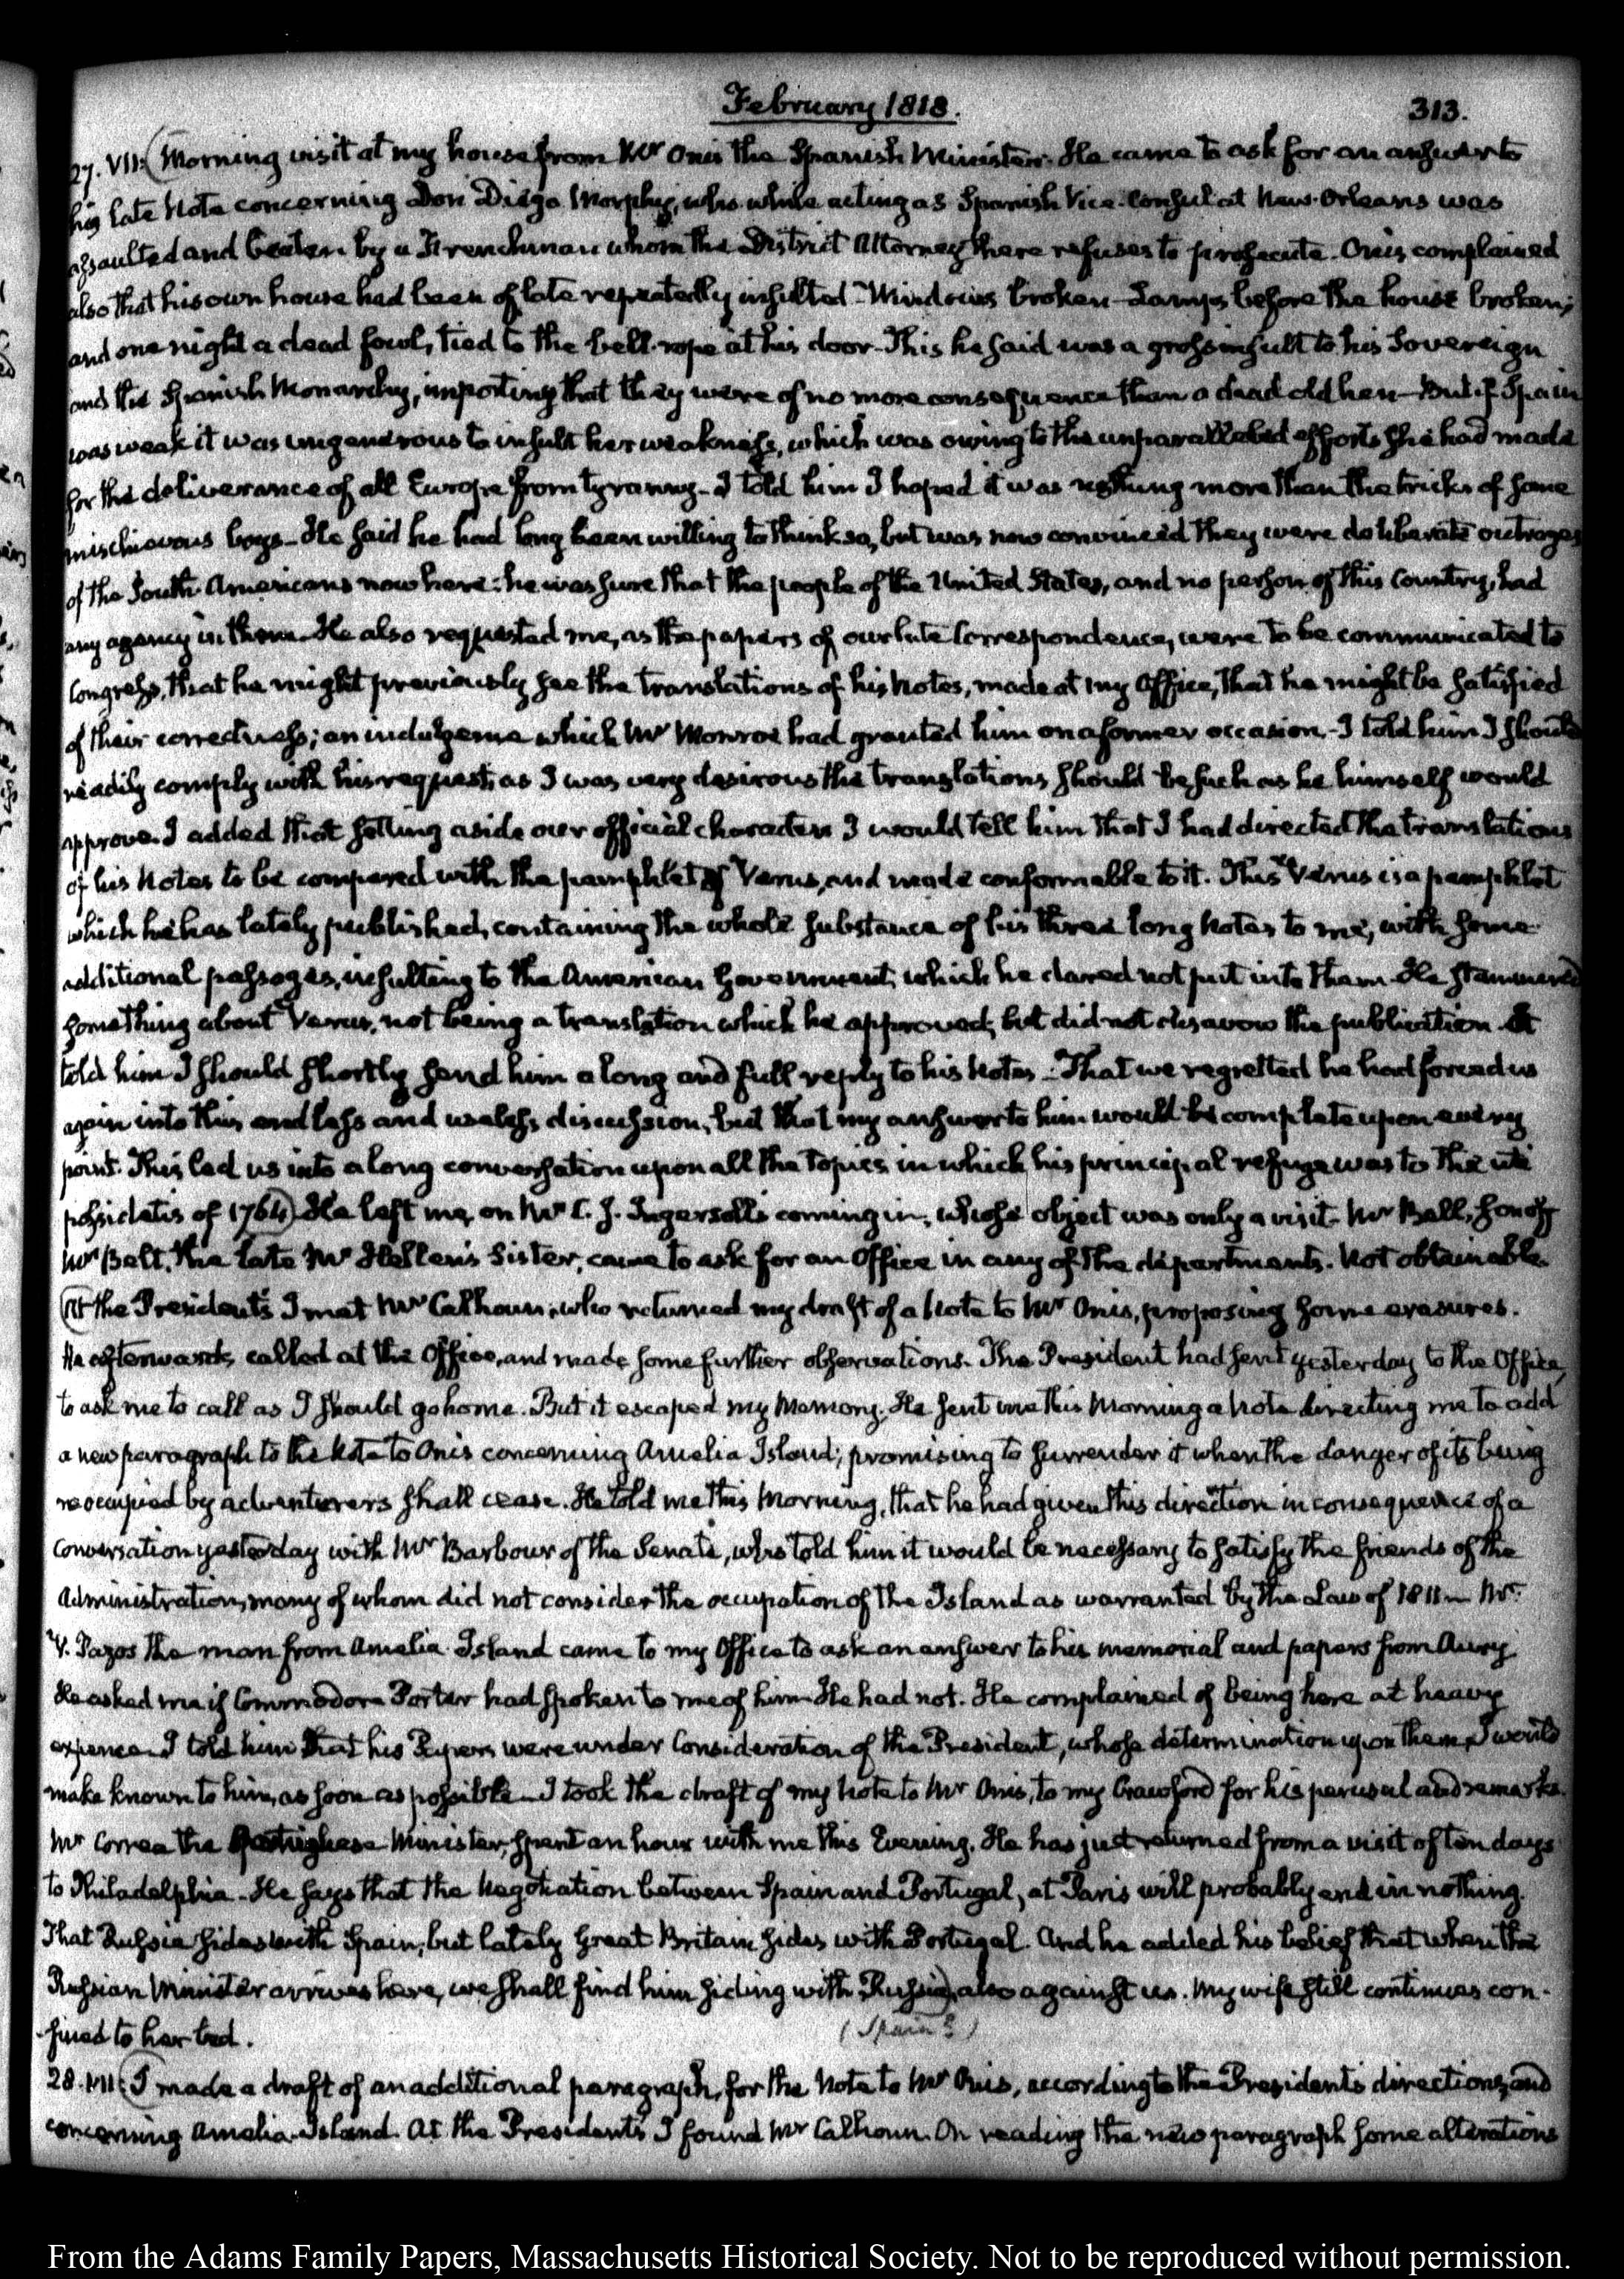 February 1818.
313.
27. VII: (Morning visit at my house from Mr Onis the Spanish Minister. He came to ask for an answer to
his late Note concerning Don Diego Morphy, who while acting as Spanish Vice-Consul at New-Orleans was
assaulted and beaten by a Frenchman whom the District Attorney there refuses to prosecute. Onis complained
also that his own house had been of late repeatedly insulted—Windows broken—Lamps before the house broken;
and one night a dead fowl, tied to the bell-rope at his door—This he said was a gross insult to his Sovereign
and the Spanish Monarchy, importing that they were of no more consequence than a dead old hen—But if Spain
was weak it was ungenerous to insult her weakness, which was owing to the unparallelled efforts she had made
for the deliverance of all Europe from tyranny—I told him I hoped it was nothing more than the tricks of some
mischievous boys—He said he had long been willing to think so, but was now convinced they were deliberate outrages
of the South-Americans now here: he was sure that the people of the United States, and no person of this Country, had
any agency in them—He also requested me, as the papers of our late Correspondence, were to be communicated to
Congress, that he might previously see the translations of his Notes, made at my Office, that he might be satisfied
of their correctness; an indulgence which Mr Monroe had granted him on a former occasion—I told him I should
readily comply with his request, as I was very desirous the translations should be such as he himself would
approve. I added that setting aside our official characters I would tell him that I had directed the translations
of his Notes to be compared with the pamphlet of Verus, and made conformable to it. This Verus is a pamphlet
which he has lately published, containing the whole substance of his three long Notes to me, with some
additional passages, insulting to the American Government, which he dared not put into them. He stammered
something about Verus, not being a translation which he approved, but did not disavow the publication. I
told him I should shortly send him a long and full reply to his Notes—That we regretted he had forced us
again into this endless and useless discussion, but that my answer to him would be complete upon every
point. This led us into a long conversation upon all the topics in which his principal refuge was to the uti
possidetis of 1764) He left me, on Mr C. J. Ingersoll's coming in; whose object was only a visit. Mr Belt, son of
Mrs Belt, the late Mr Hellen's Sister, came to ask for an Office in any of the departments. Not obtainable.
(At the President's I met Mr Calhoun, who returned my draft of a Note to Mr Onis, proposing some erasures.
He afterwards called at the Office, and made some further observations. The President had sent yesterday to the Office,
to ask me to call as I should go home. But it escaped my Memory. He sent me this Morning a Note directing me to add
a new paragraph to the Note to Onis concerning Amelia Island; promising to surrender it when the danger of its being
reoccupied by adventurers shall cease. He told me this Morning, that he had given this direction in consequence of a
conversation yesterday with Mr Barbour of the Senate, who told him it would be necessary to satisfy the friends of the
Administration, many of whom did not consider the occupation of the Island as warranted by the Law of 1811—Mr
V. Pazos the man from Amelia Island came to my Office to ask an answer to his memorial and papers from Aury
He asked me if Commodore Porter had spoken to me of him—He had not. He complained of being here at heavy
expence—I told him that his Papers were under Consideration of the President, whose determination upon them I would
make known to him, as soon as possible—I took the draft of my Note to Mr Onis, to my Crawford for his perusal and remarks.
Mr Correa the Portughese Minister, spent an hour with me this Evening. He has just returned from a visit of ten days
to Philadelphia—He says that the Negotiation between Spain and Portugal, at Paris will probably end in nothing.
That Russia sides with Spain, but lately Great Britain sides with Portugal. And he added his belief that when the
Russian Minister arrives here, we shall find him siding with Russia) also against us. My wife still continues con-
fined to her bed.
(Spain?)
28. VII: (I made a draft of an additional paragraph, for the Note to Mr Onis, according to the President's directions, and
concerning Amelia-Island. At the President's I found Mr Calhoun. On reading the new paragraph some alterations
From the Adams Family Papers, Massachusetts Historical Society. Not to be reproduced without permission.